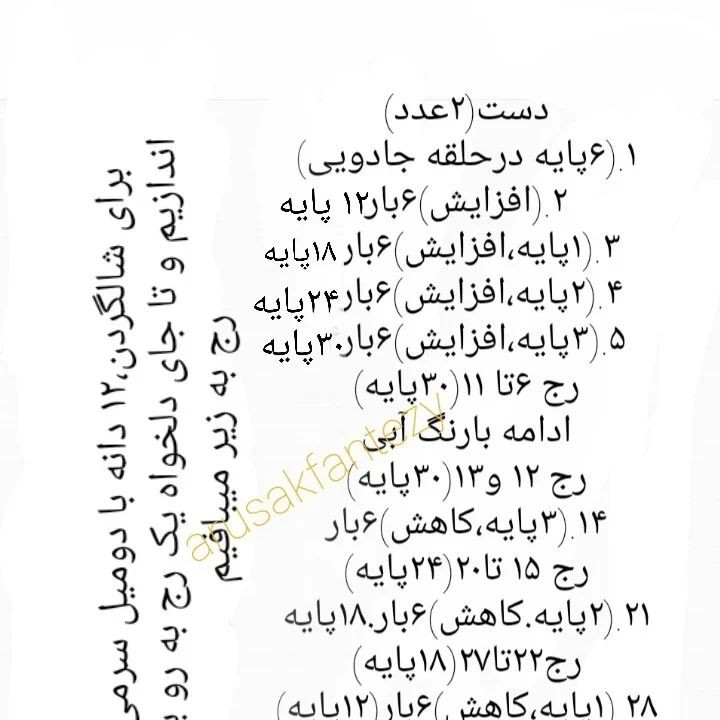 دست(۲عدد)
۱.(۶پایه درحلقه جادویی)
۲.(افزایش)۶بار۱۲ پایه
۳.(۱پایه،افزایش)۶بار۱۸پایه
۴.(۲پایه،افزایش)۶بار۲۴پایه
۵.(۳پایه،افزایش)۶بار۳۰پایه
رج ۶تا ۱۱(۳۰پایه)
ادامه بارنگ آبی
رج ۱۲ و۱۳(۳۰پایه)
۱۴.(۳پایه،کاهش)۶بار
رج ۱۵ تا۲۰(۲۴پایه)
۲۱.(۲پایه.کاهش)۶بار.۱۸پایه
رج۲۲تا۲۷(۱۸پایه)
۲۸ (۱پایه،کاهش)۶بار(۱۲پایه)
برای شالگردن،۱۲ دانه با دومیل سرمی
اندازیم و تا جای دلخواه یک رج به رو
رج به زیر میبافیم
arusakfantezy